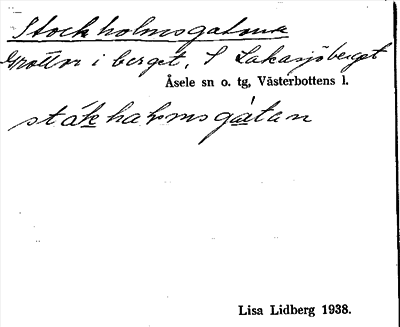 Stockholmsgatorna
Grottor i berget, S Lakasjöberget
Åsele sn o. tg, Västerbottens l.
ståkhalmsgàtan
Lisa Lidberg 1938.